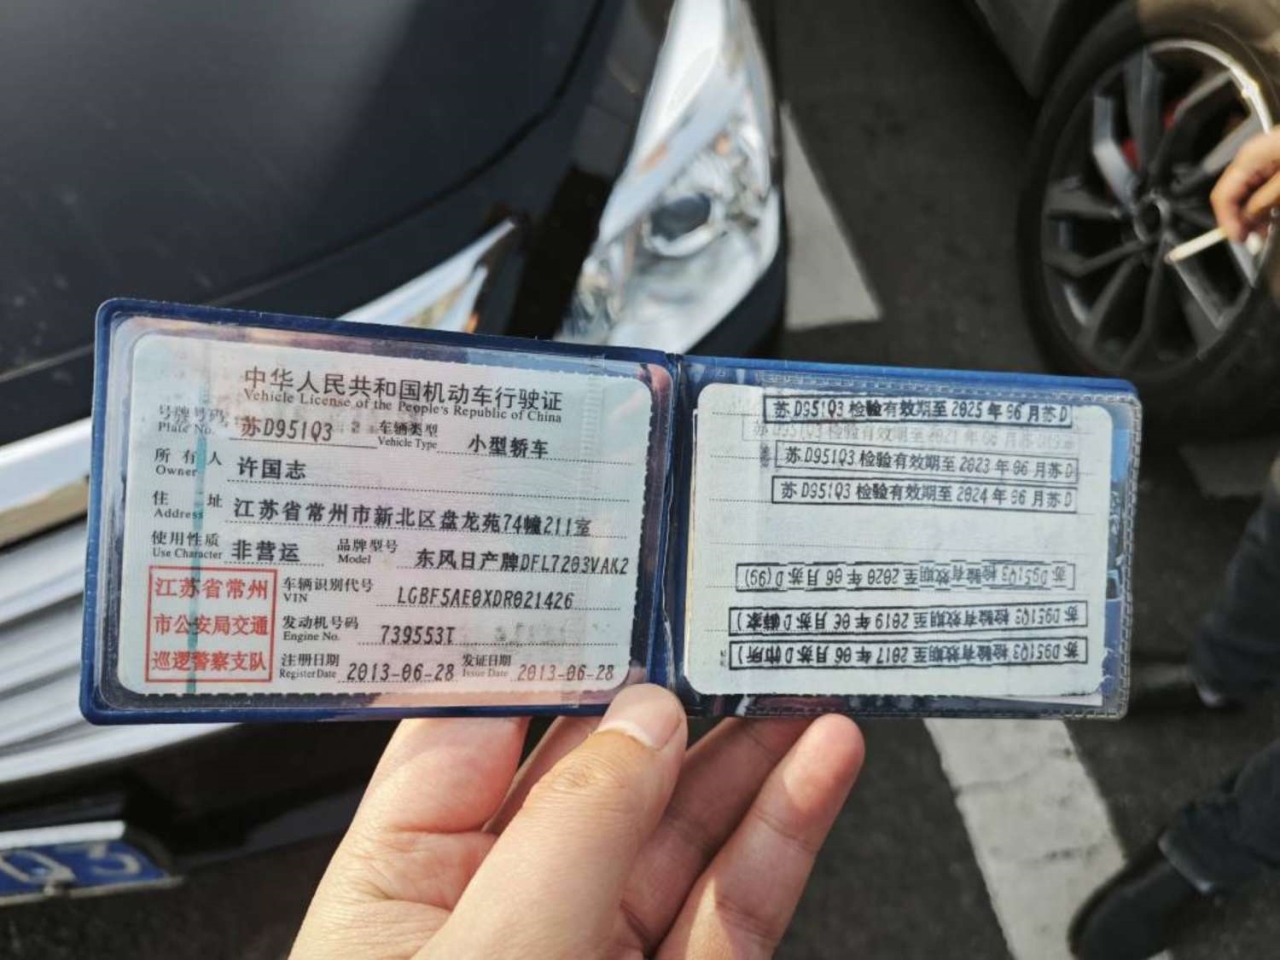 中华人民共和国机动车行驶证
Vehicle License of the People's Republic of China
号牌号码 苏D951Q3 车辆类型 小型轿车
Plate No. Vehicle Type
所有人 许国志
Owner
住址 江苏省常州市新北区盘龙苑74幢211室
Address
使用性质 非营运 品牌型号 东风日产牌DFL7203VAK2
Use Character Model
江苏省常州
市公安局交通
巡逻警察支队
车辆识别代号 LGBF5AE0XDR021426
VIN
发动机号码 739553T
Engine No.
注册日期 2013-06-28 发证日期 2013-06-28
Register Date Issue Date
苏D951Q3 检验有效期至 2025 年 06 月 苏D
苏D951Q3 检验有效期至 2023 年 06 月 苏D
苏D951Q3 检验有效期至 2024 年 06 月 苏D
苏D951Q3 检验有效期至 2020 年 06 月 苏D (99)
苏D951Q3 检验有效期至 2019 年 06 月 苏D
苏D951Q3 检验有效期至 2017 年 06 月 苏D
Q3